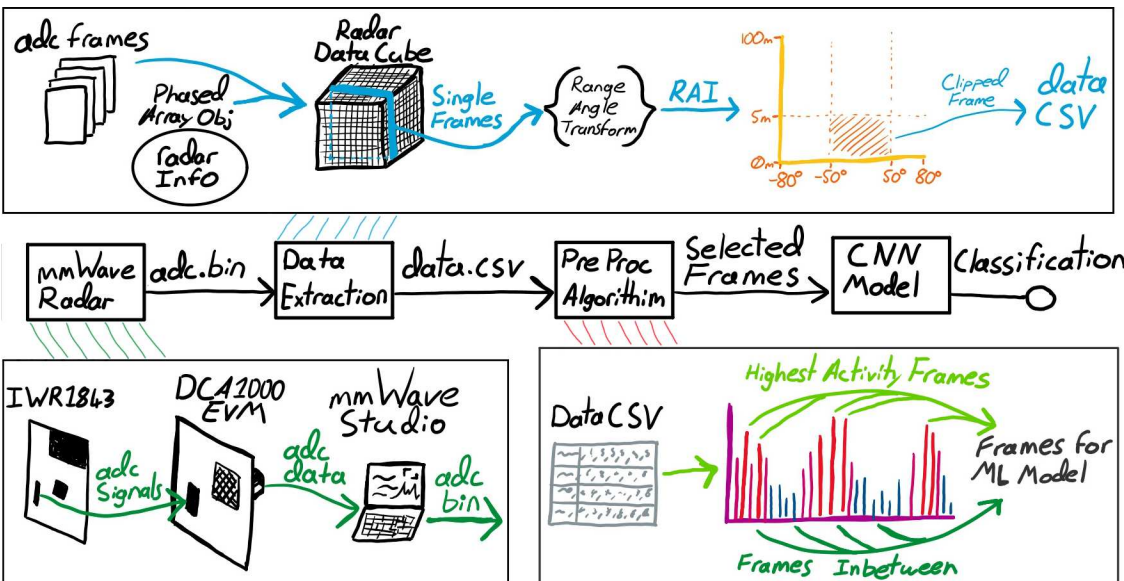 adc frames
Phased
Array Obj
radar
Info
Radar
Data Cube
Single
Frames
Range
Angle
Transform
RAI
100m
5m
0m
-80° -50° 50° 80°
Clipped
Frame
data
CSV
mmWave
Radar
adc.bin
Data
Extraction
data.csv
Pre Proc
Algorithim
Selected
Frames
CNN
Model
Classification
IWR1843
adc
Signals
DCA1000
EVM
adc
data
mmWave
Studio
adc
bin
Data CSV
Highest Activity Frames
Frames for
ML Model
Frames Inbetween